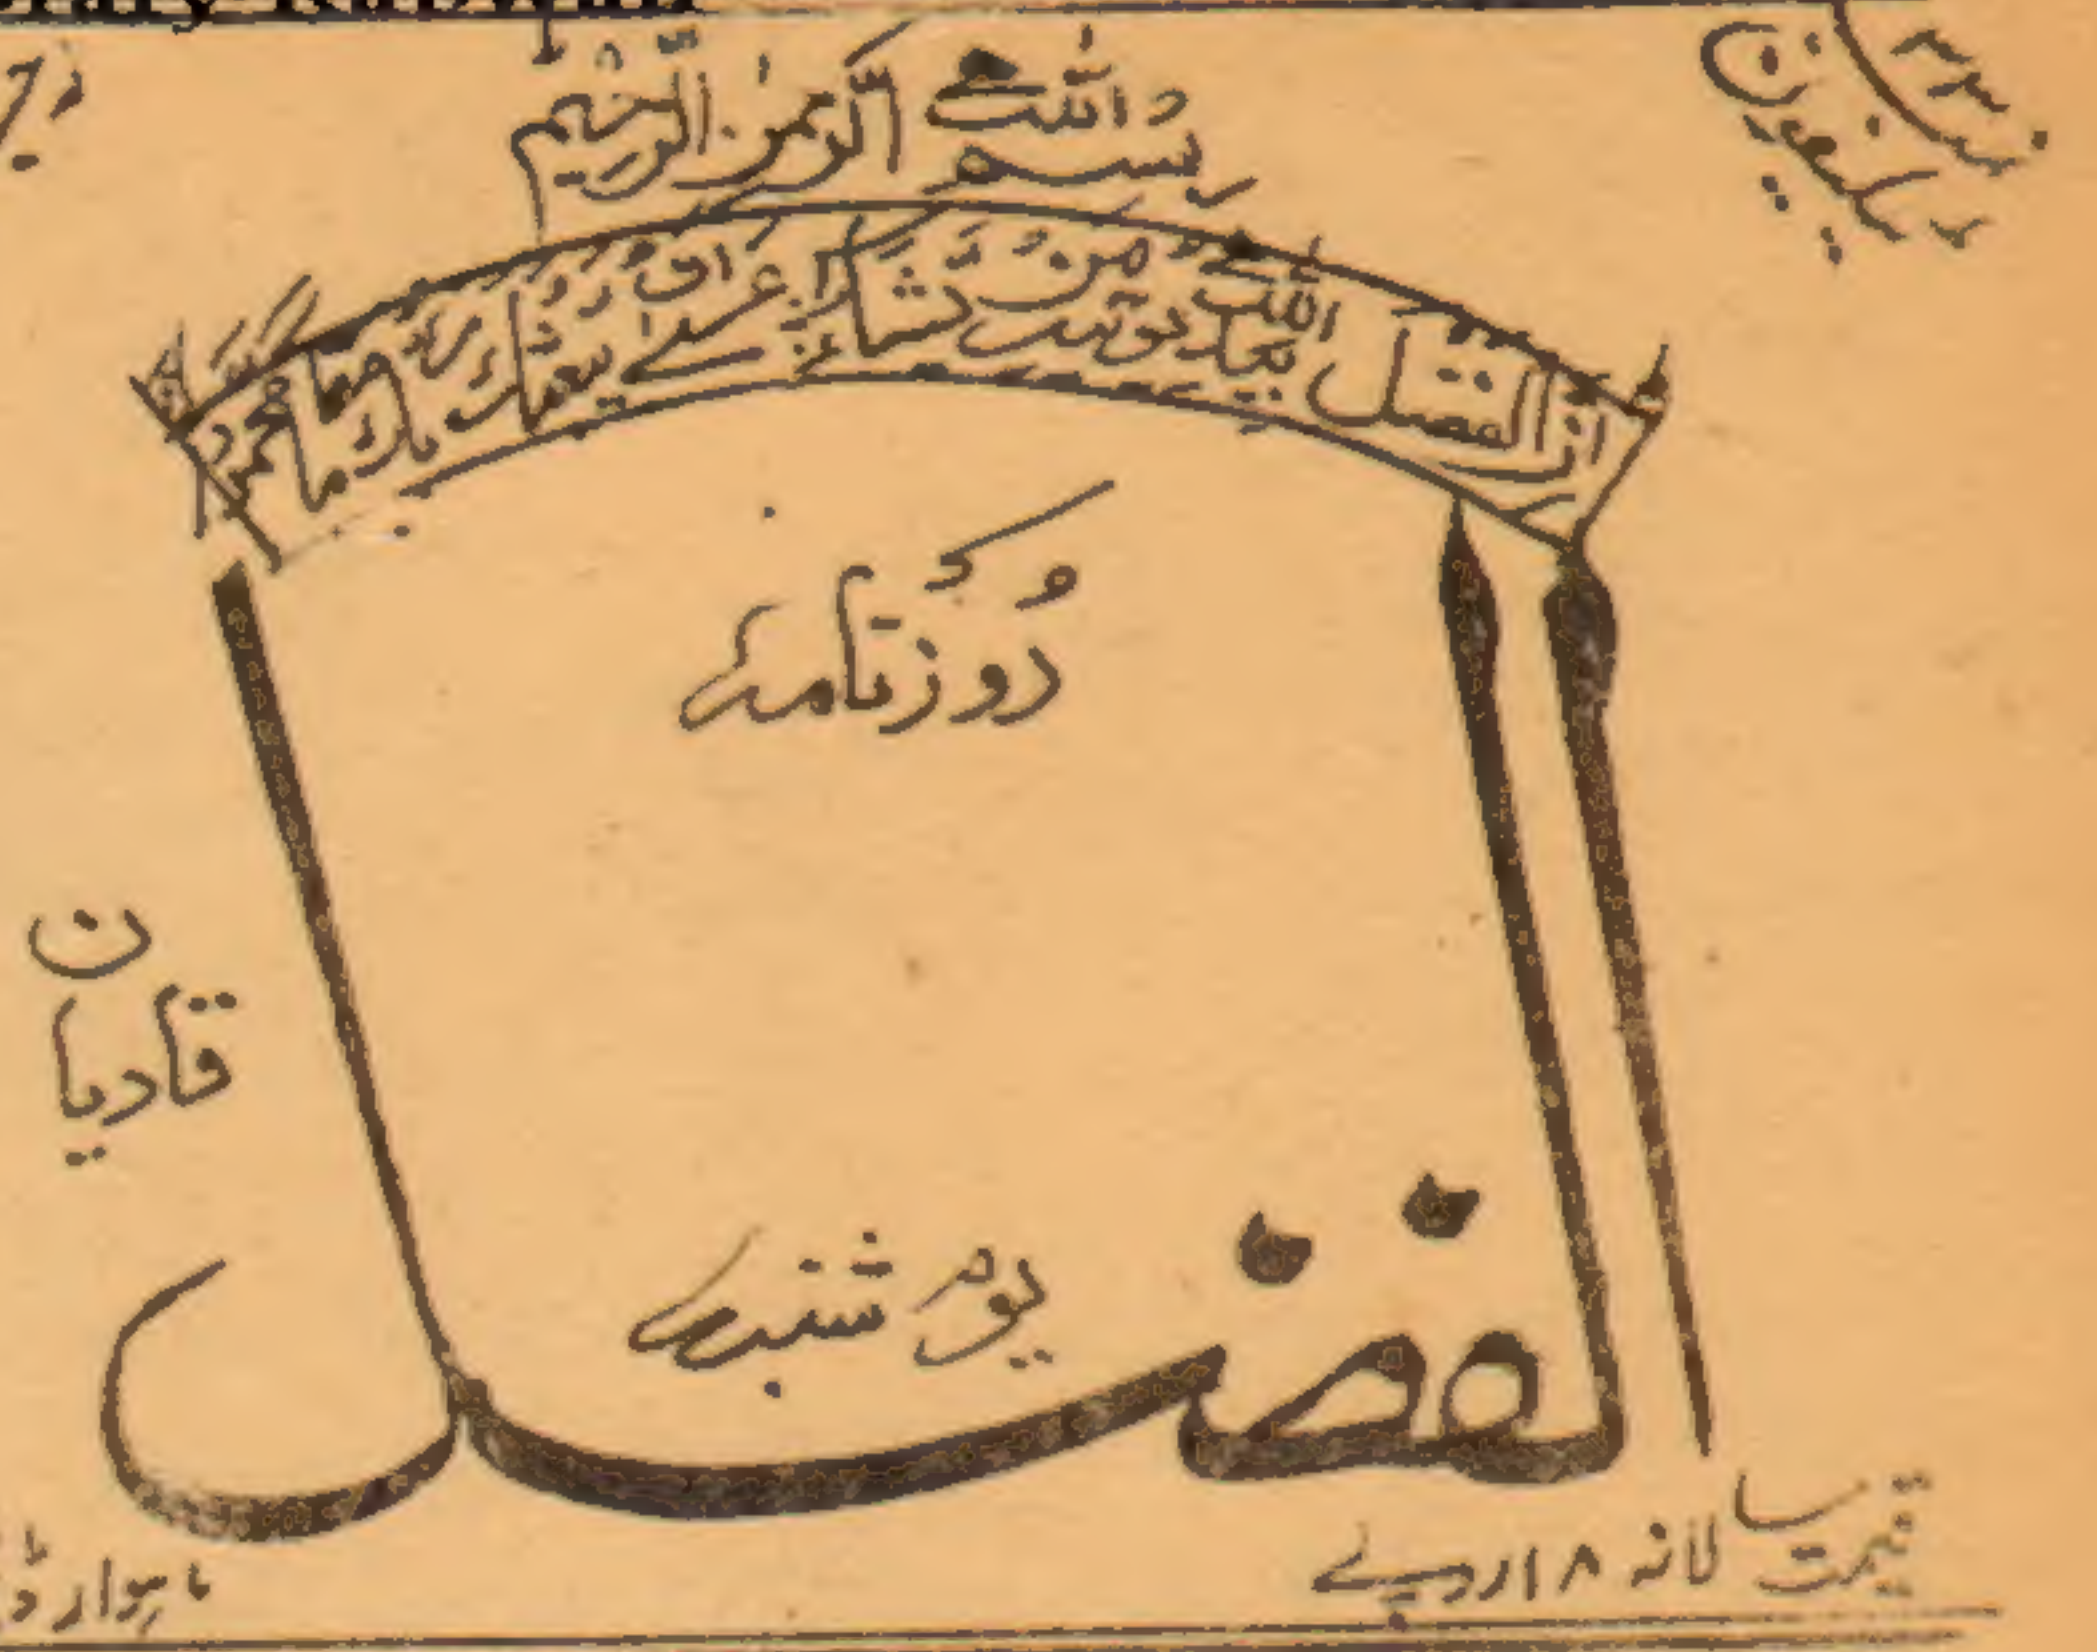 ٹیلیفون نمبر ۳۳
بسم اللہ الرحمن الرحیم
ان الفضل بید اللہ یوتیہ من یشاء عسیٰ ان یبعثک ربک مقاما محمودا
روزنامہ
قادیان
یوم شنبہ
الفضل
قیمت سالانہ ۱۸ روپے
ماہوار